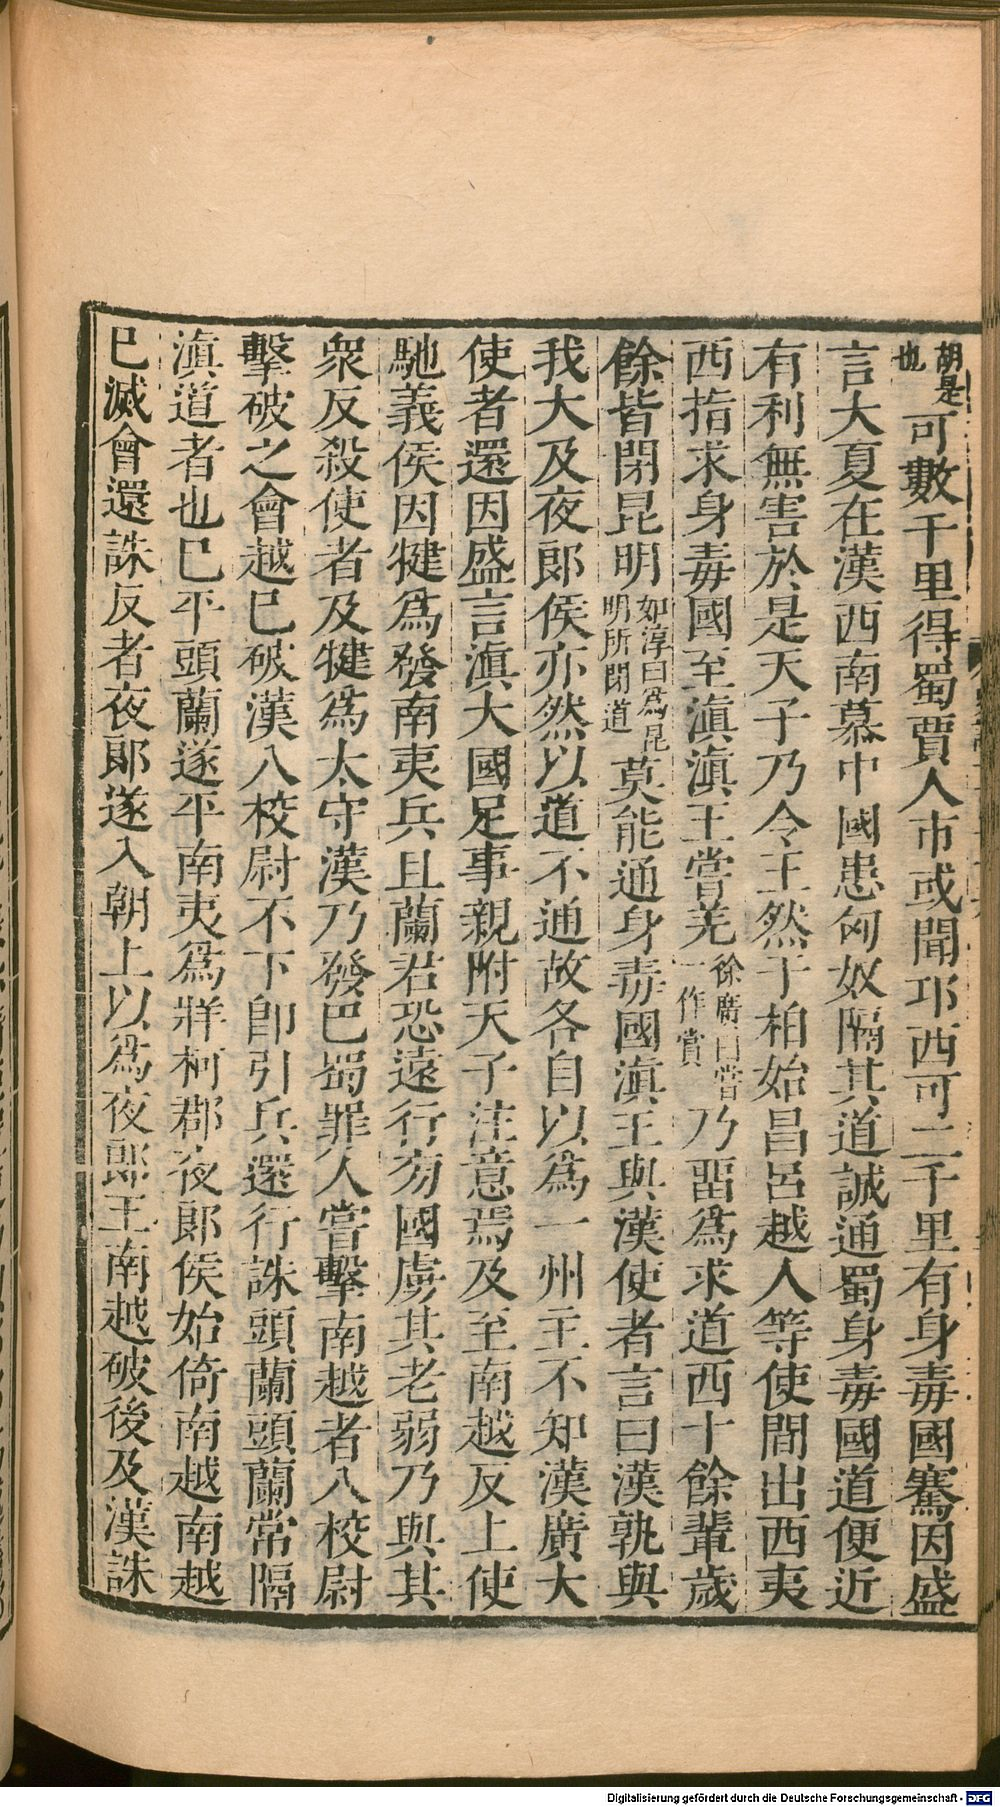 胡是也可數千里得蜀賈人市或聞邛西可二千里有身毒國騫因盛
言大夏在漢西南慕中國患匈奴隔其道誠通蜀身毒國道便近
有利無害於是天子乃令王然于柏始昌呂越人等使間出西夷
西指求身毒國至滇滇王嘗羌徐廣曰嘗一作賞乃畱為求道西十餘輩歲
餘皆閉昆明如淳曰爲昆明所閉道莫能通身毒國滇王與漢使者言曰漢孰與
我大及夜郎侯亦然以道不通故各自以爲一州主不知漢廣大
使者還因盛言滇大國足事親附天子注意焉及至南越反上使
馳義侯因犍爲發南夷兵且蘭君恐遠行旁國虜其老弱乃與其
衆反殺使者及犍爲太守漢乃發巴蜀罪人嘗擊南越者八校尉
擊破之會越已破漢八校尉不下卽引兵還行誅頭蘭頭蘭常隔
滇道者也已平頭蘭遂平南夷爲牂柯郡夜郎侯始倚南越南越
已滅會還誅反者夜郎遂入朝上以爲夜郎王南越破後及漢誅
Digitalisierung gefördert durch die Deutsche Forschungsgemeinschaft - DFG